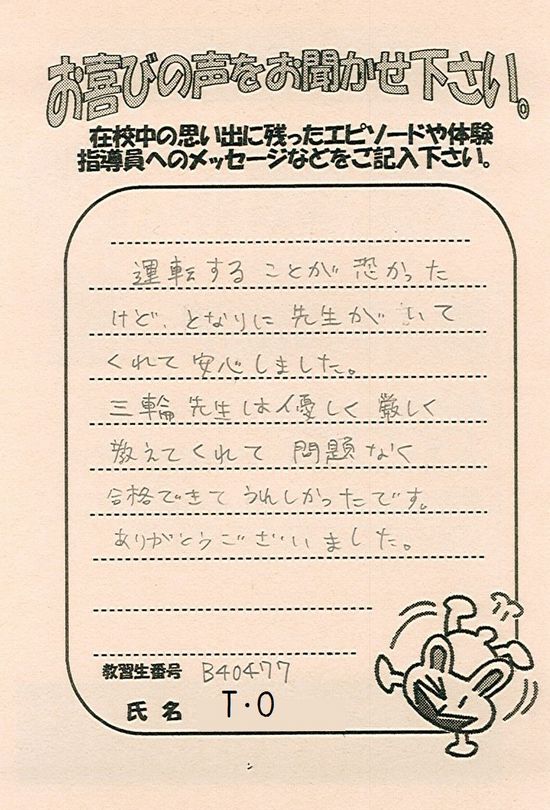 お喜びの声をお聞かせ下さい。
在校中の思い出に残ったエピソードや体験
指導員へのメッセージなどをご記入下さい。
運転することが恐かった
けど、となりに先生がいて
くれて安心しました。
三輪先生は優しく厳しく
教えてくれて問題なく
合格できてうれしかったです。
ありがとうございました。
教習生番号 B40477
氏名 T・O